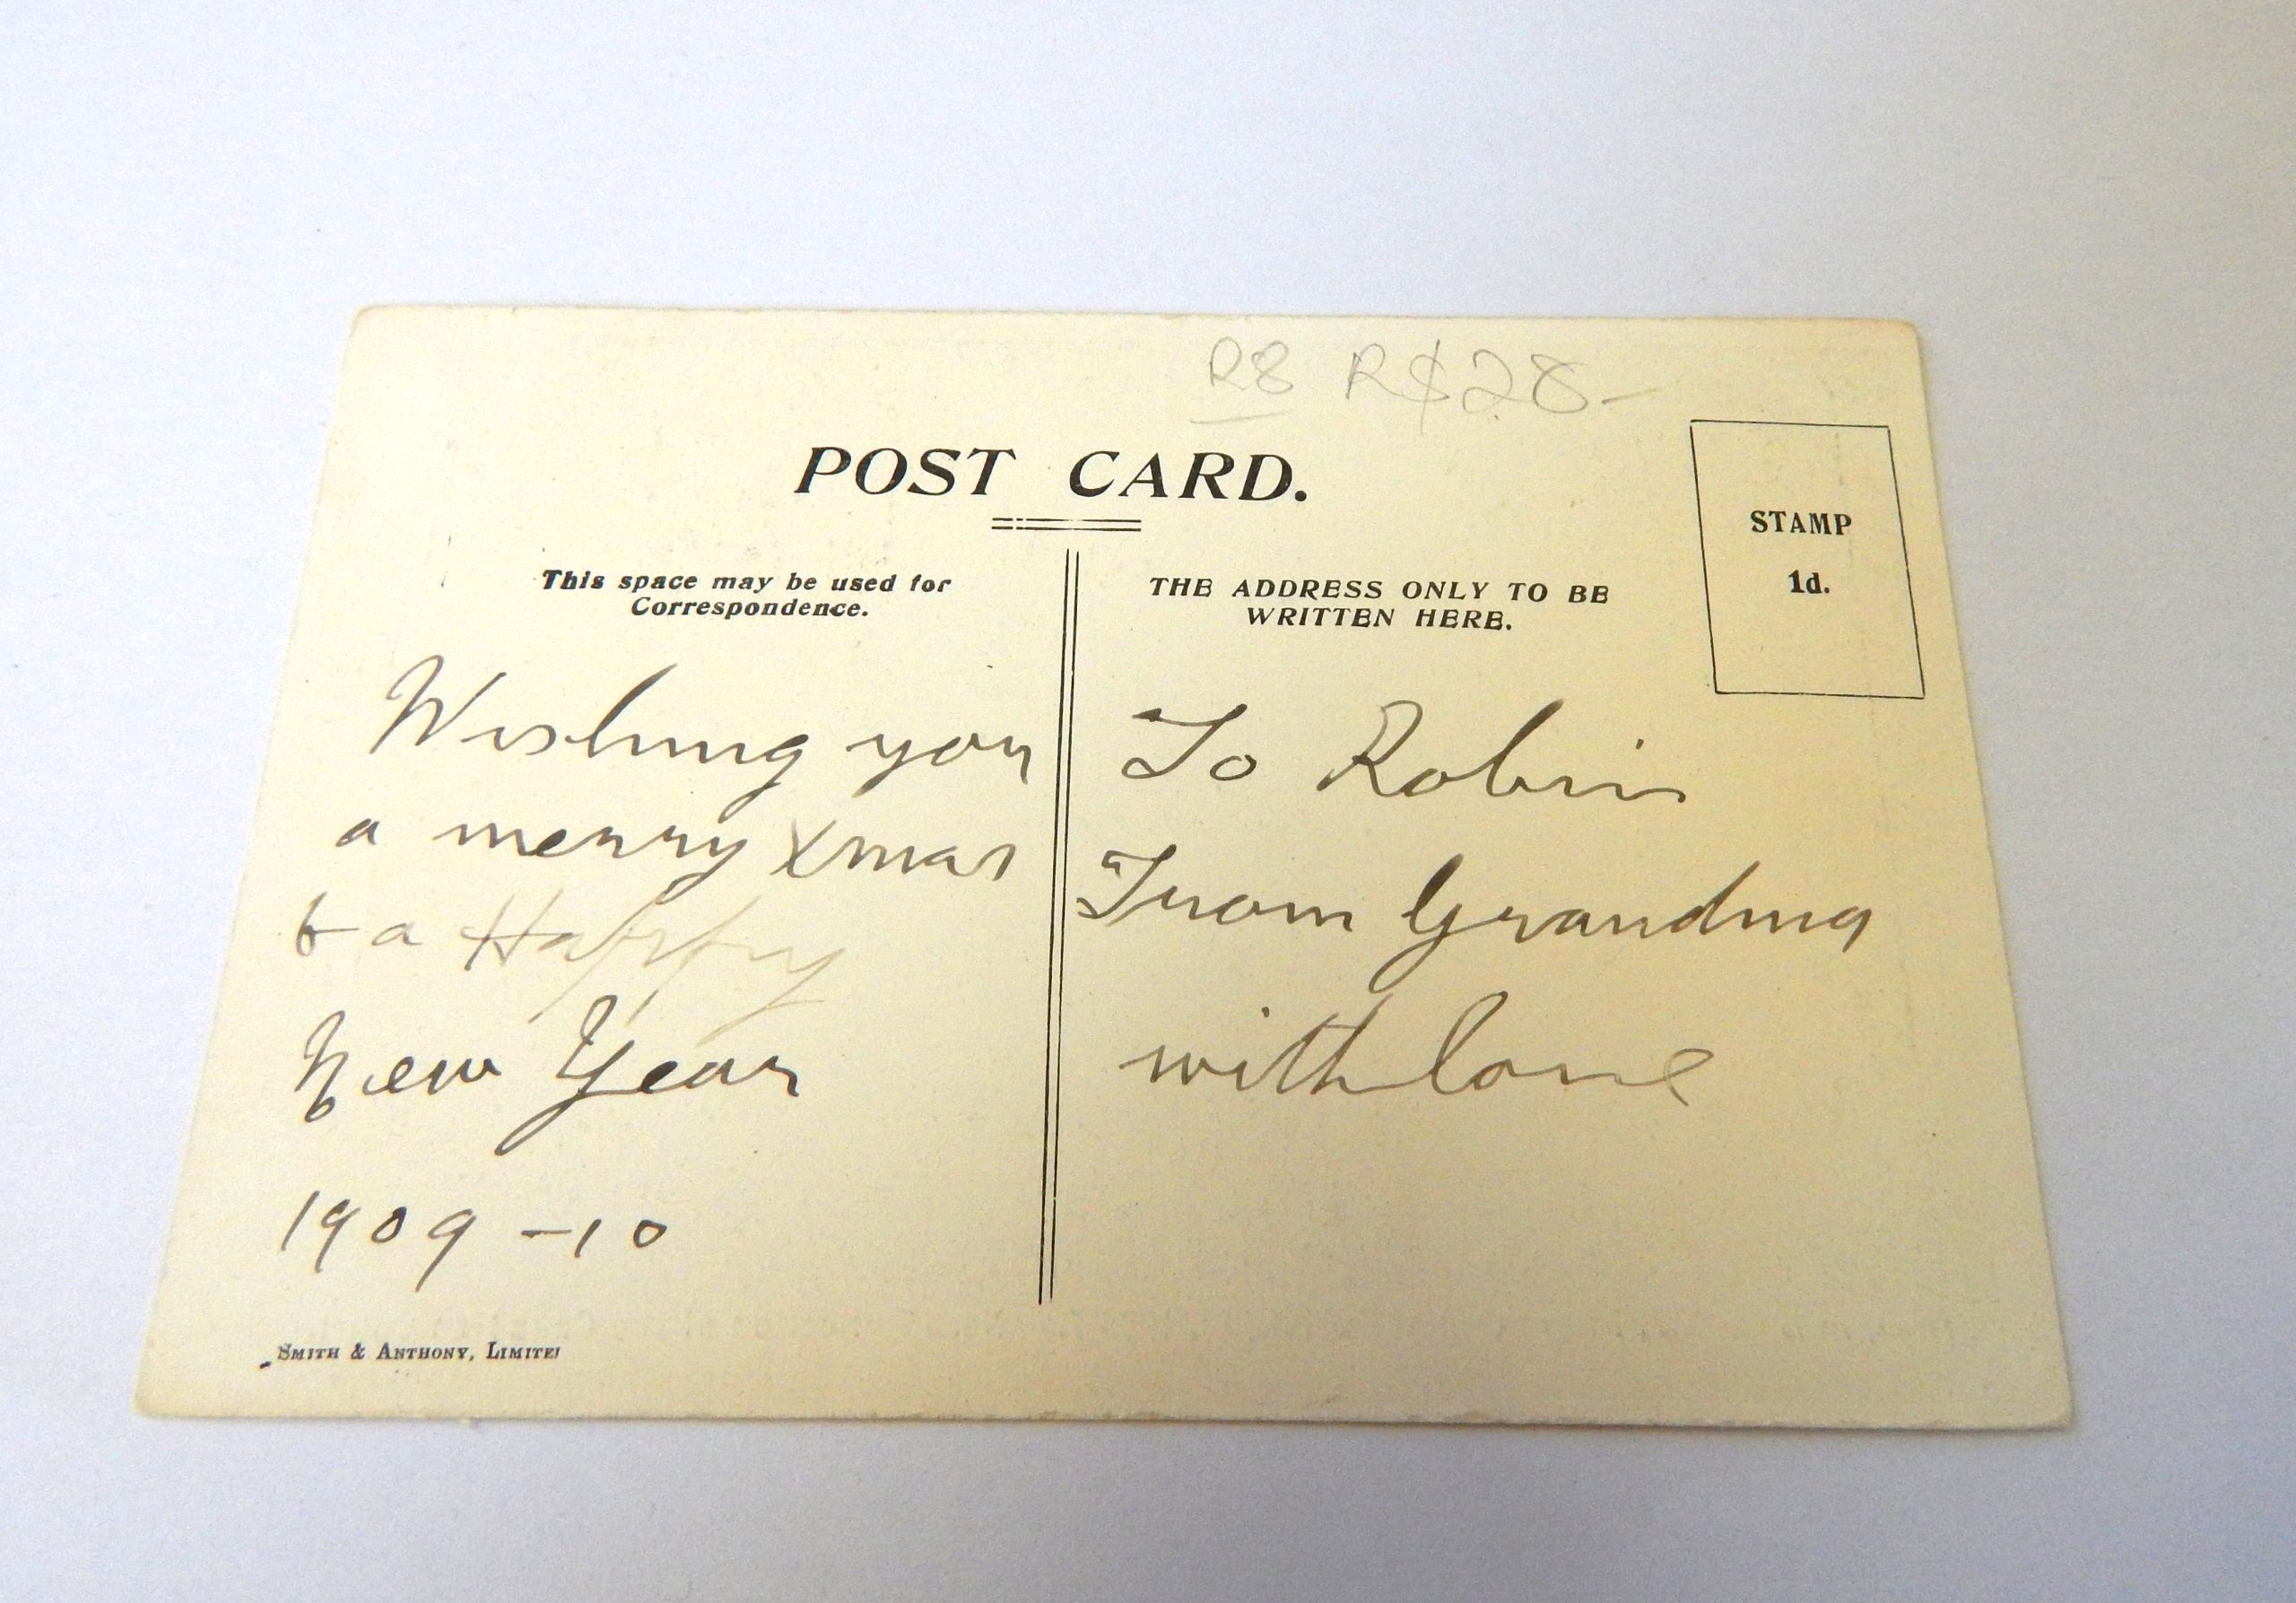 R8 R$28-
POST CARD.
This space may be used for
Correspondence.
THE ADDRESS ONLY TO BE
WRITTEN HERE.
STAMP
1d.
Wishing you
a merry Xmas
& a Happy
New Year
1909-10
To Robin
From Grandma
with love
SMITH & ANTHONY, LIMITED